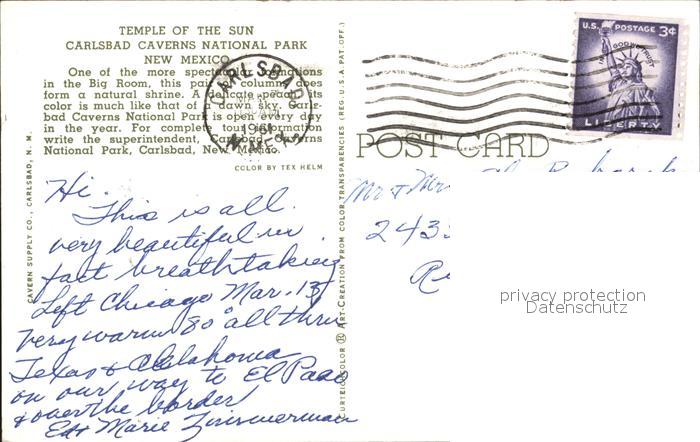 TEMPLE OF THE SUN
CARLSBAD CAVERNS NATIONAL PARK
NEW MEXICO
One of the more spectacular formations
in the Big Room, this pastel column does
form a natural shrine. A delicate peach, its
color is much like that of a dawn sky. Carls-
bad Caverns National Park is open every day
in the year. For complete tour information
write the superintendent, Carlsbad Caverns
National Park, Carlsbad, New Mexico.
COLOR BY TEX HELM
CARLSBAD
1961
N. MEX.
U.S. POSTAGE 3¢
IN GOD WE TRUST
LIBERTY
POST CARD
CAVERN SUPPLY CO., CARLSBAD, N. M.
CURTEICHCOLOR ® ART-CREATION FROM COLOR TRANSPARENCIES (REG. U.S.A. PAT. OFF.)
Hi.
This is all
very beautiful in
fact breathtaking
Left Chicago Mar. 13th
very warm 80° all thru
Texas & Oklahoma
on our way to El Paso
& over the border
Ed & Marie Zimmerman
Mr & Mr
243
privacy protection
Datenschutz